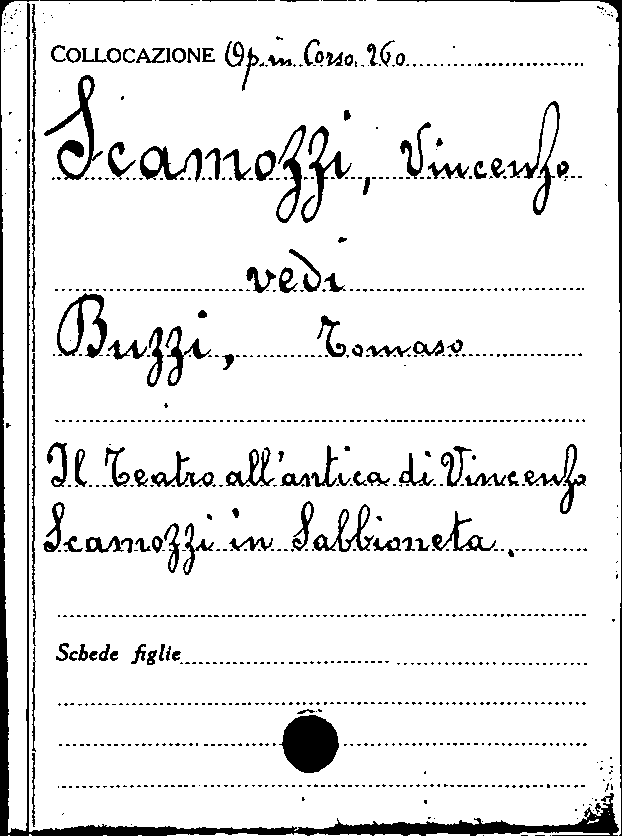 COLLOCAZIONE Op. in Corso. 260
Scamozzi, Vincenzo
vedi
Buzzi, Tomaso
Il Teatro all'antica di Vincenzo
Scamozzi in Sabbioneta.
Schede figlie